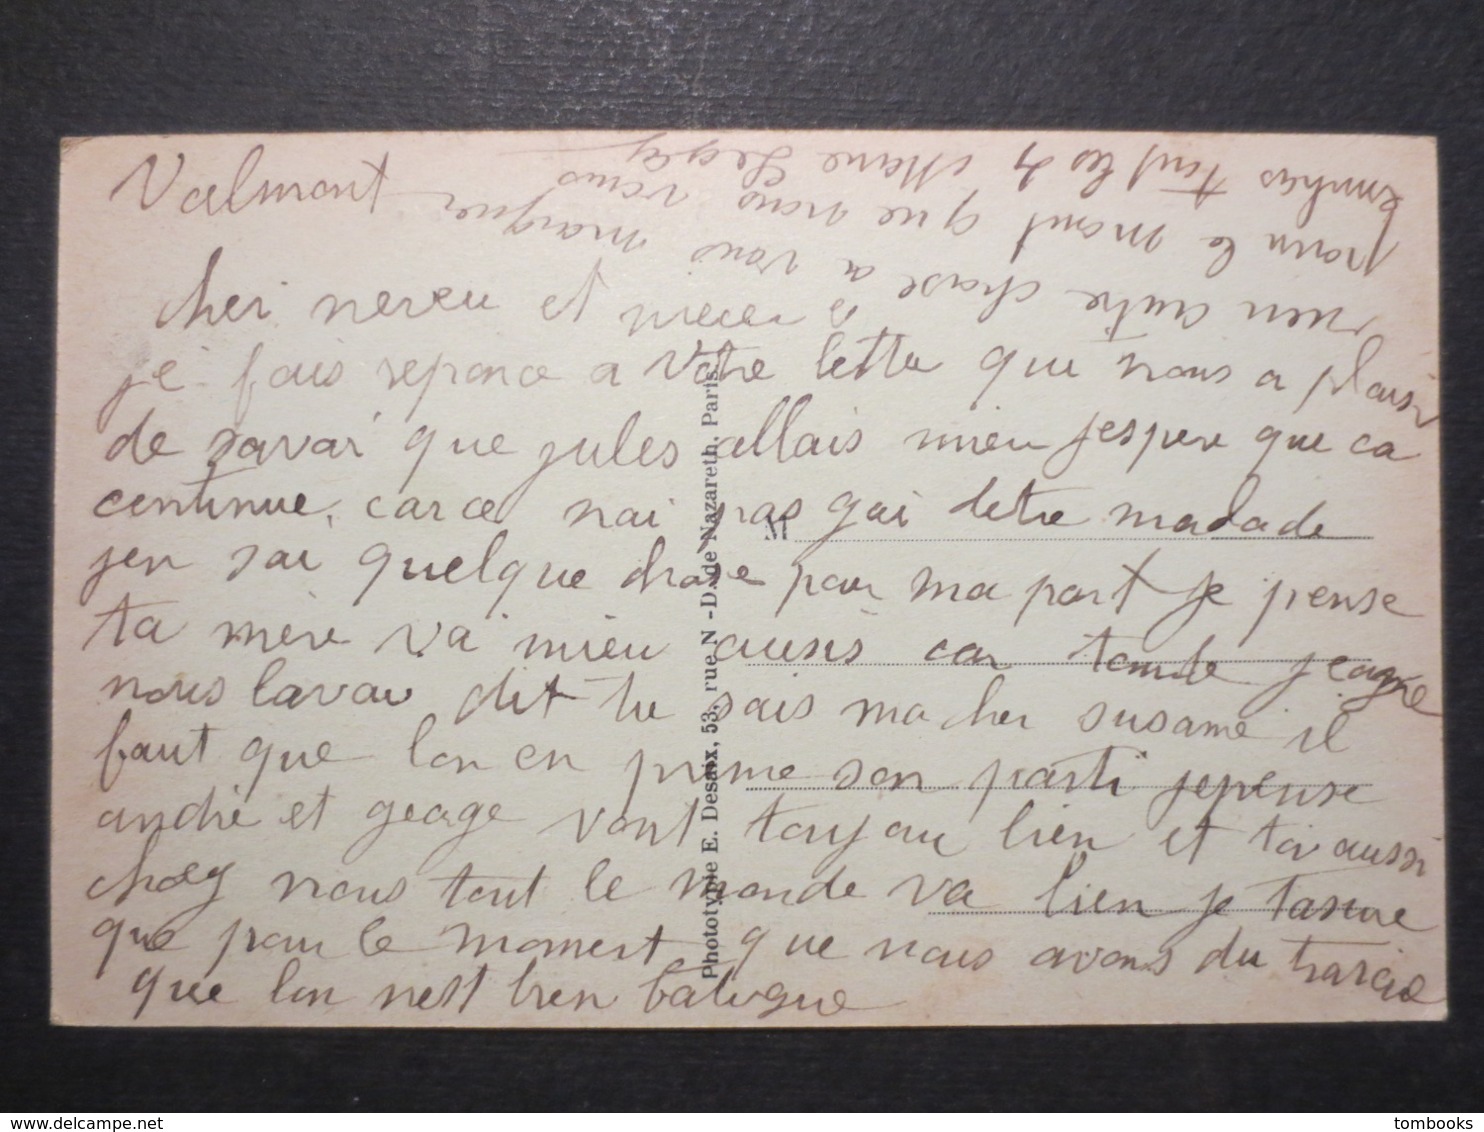 Valmont
cher neveu et niece
je fais reponce a votre lettre qui nous a plaisir
de savoir que jules allais mieu jespere que ca
continue, car ce nai pas gai detre malade
jen sai quelque chose pour ma part je pense
ta mère va mieu ausis car tande jeorge
nous lavai dit tu sais ma cher susane il
faut que lon en prene son parti je pense
andré et george vont toujou bien et toi aussi
chez nous tout le monde va bien je tasure
que pour le moment que nous avons du travaie
que lon nest bien fatigue
rien autre chose a vous marquer
pour le mont que nous vous
Marie
M
Phototypie E. Desaix, 53, rue N.-D. de Nazareth. Paris.
tombooks